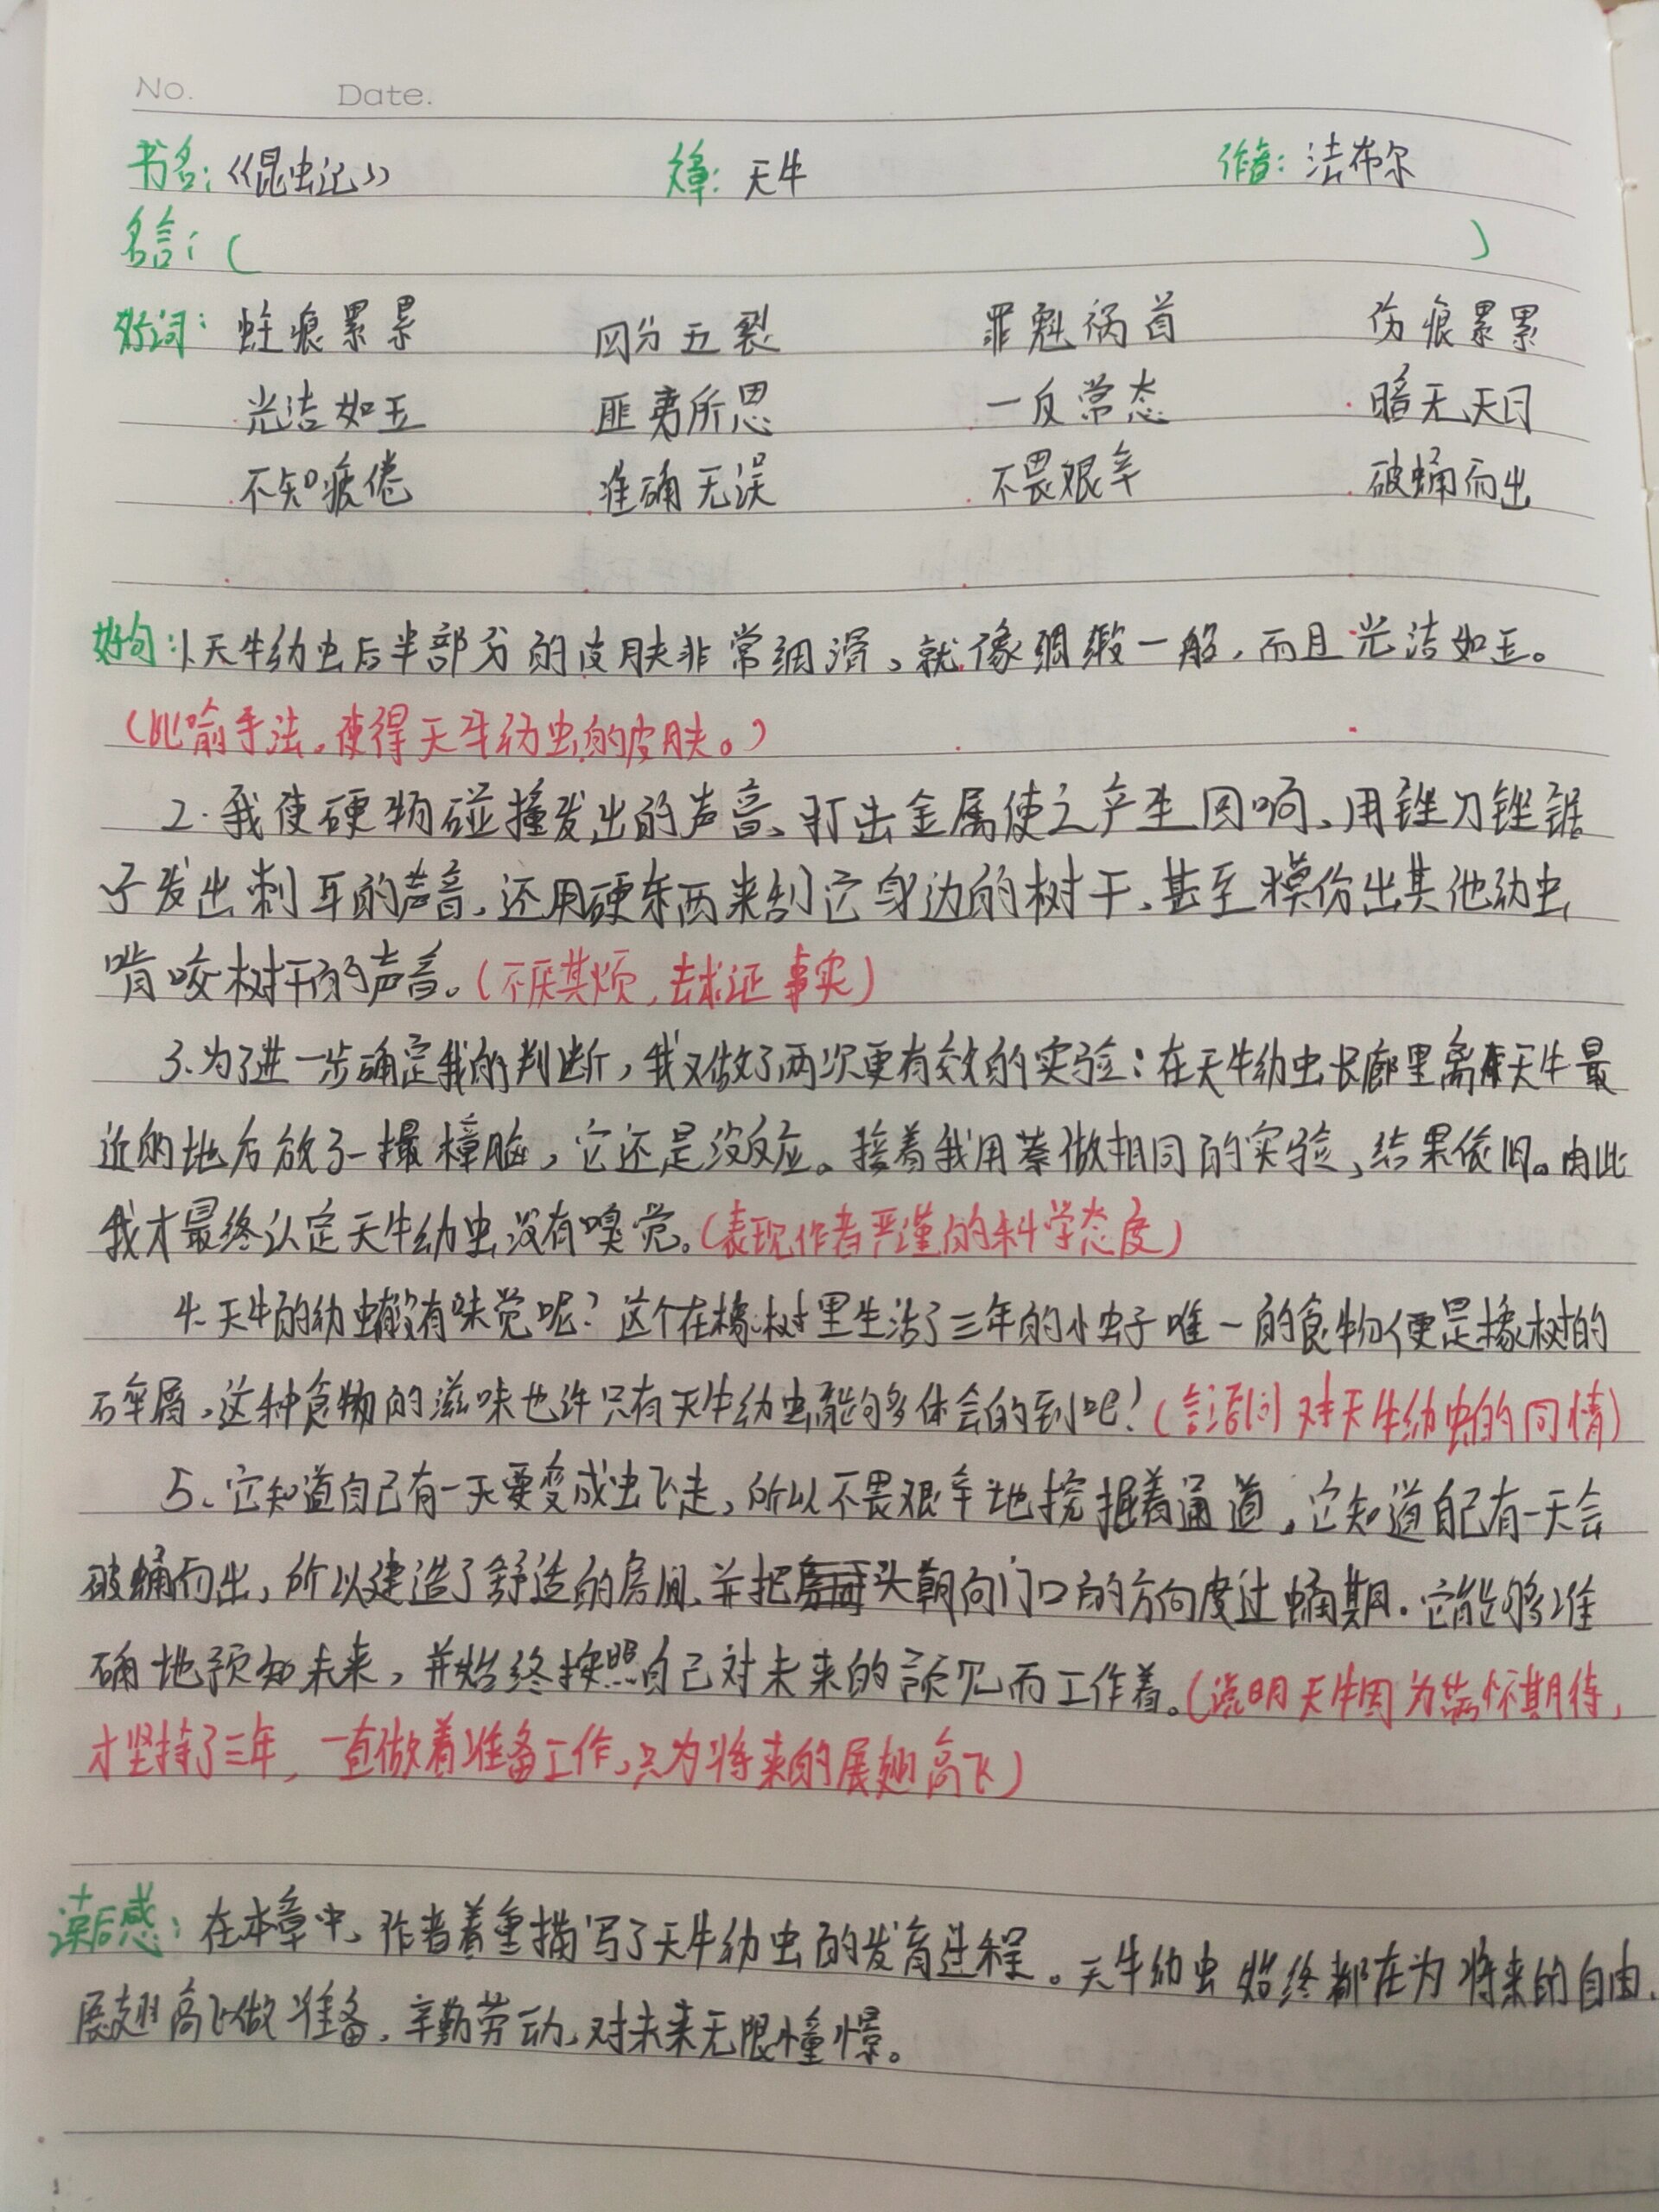 No. Date.
书名：《昆虫记》 文章：天牛 作者：法布尔
名言：（ ）
好词：蛀痕累累 四分五裂 罪魁祸首 伤痕累累
光洁如玉 匪夷所思 一反常态 暗无天日
不知疲倦 准确无误 不畏艰辛 破蛹而出
好句：1.天牛幼虫后半部分的皮肤非常细滑，就像绸缎一般，而且光洁如玉。
（比喻手法。使得天牛幼虫的皮肤。）
2.我使硬物碰撞发出的声音、打击金属使之产生回响、用锉刀锉锯
子发出刺耳的声音，还用硬东西来刮它身边的树干，甚至模仿出其他幼虫
啃咬树干的声音。（不厌其烦，去求证事实）
3.为了进一步确定我的判断，我又做了两次更有效的实验：在天牛幼虫长廊里离天牛最
近的地方放了一撮樟脑，它还是没反应。接着我用萘做相同的实验，结果依旧。由此
我才最终认定天牛幼虫没有嗅觉。（表现作者严谨的科学态度）
4.天牛的幼虫有没有味觉呢？这个在橡树里生活了三年的小虫子唯一的食物便是橡树的
碎屑，这种食物的滋味也许只有天牛幼虫能够体会的到吧！（ 对天牛幼虫的同情）
5、它知道自己有一天要变成虫飞走，所以不畏艰辛地挖掘着通道，它知道自己有一天会
破蛹而出，所以建造了舒适的房间，并把头朝向门口的方向度过蛹期。它能够准
确地预知未来，并始终按照自己对未来的预见而工作着。（说明天牛因为满怀期待，
才坚持了三年，一直做着准备工作，只为将来的展翅高飞）
读后感：在本章中，作者着重描写了天牛幼虫的发育进程。天牛幼虫始终都在为将来的自由、
展翅高飞做准备，辛勤劳动，对未来无限憧憬。